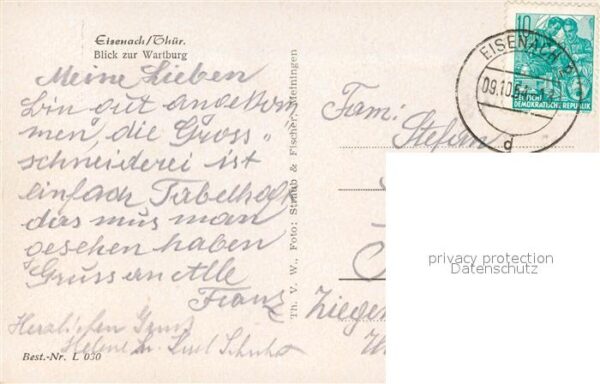 Eisenach/Thür.
Blick zur Wartburg
Meine Lieben
bin gut angekom
men, die Gross-
schneiderei ist
einfach Fabelhaft
das mus man
gesehen haben
Gruss an Alle
Franz
Herzlichen Gruss
Helene u.
Best.-Nr. L 030
Th. V. W., Foto: Straub & Fischer, Meiningen
Fam:
Stefan
Ziegen
EISENACH
09.10.5
d
10
DEUTSCHE
DEMOKRATISCHE REPUBLIK
privacy protection
Datenschutz